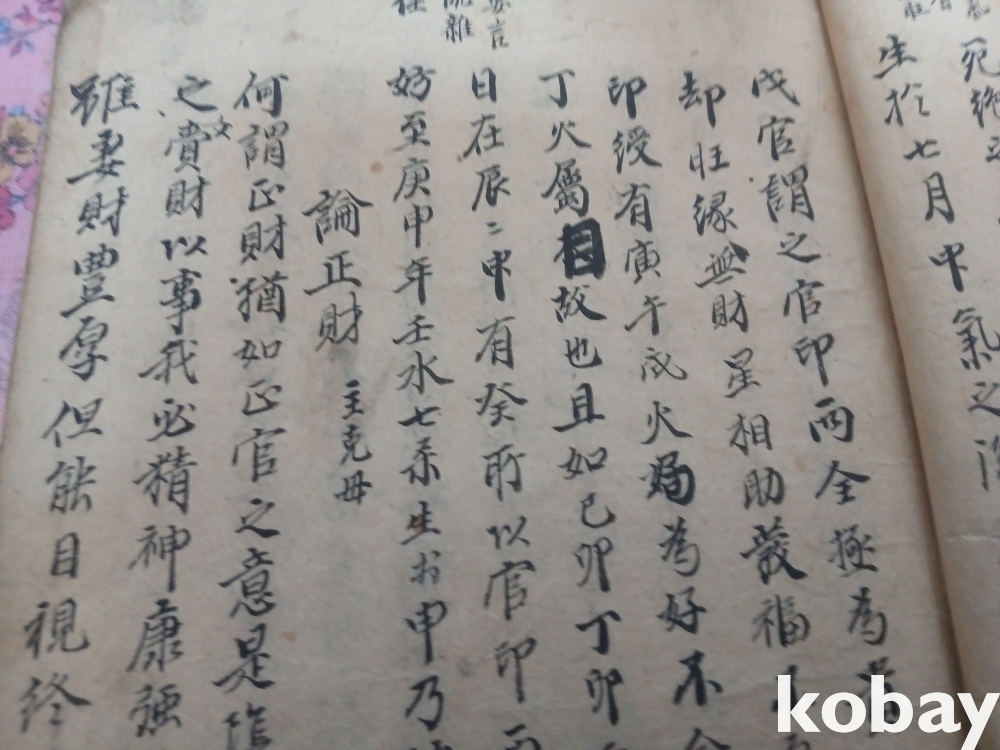 死絶
生於七月中氣之
戊官謂之官印兩全極為
却旺緣無財星相助發福
印綬有寅午戌火局為好不
丁火屬故也且如己卯丁卯
日在辰二中有癸所以官印
好至庚申年壬水七系生於申乃
論正財 主克毋
何謂正財猶如正官之意是
之賫財以事我必精神康強
文
雖妻財豐厚但能目視終
kobay